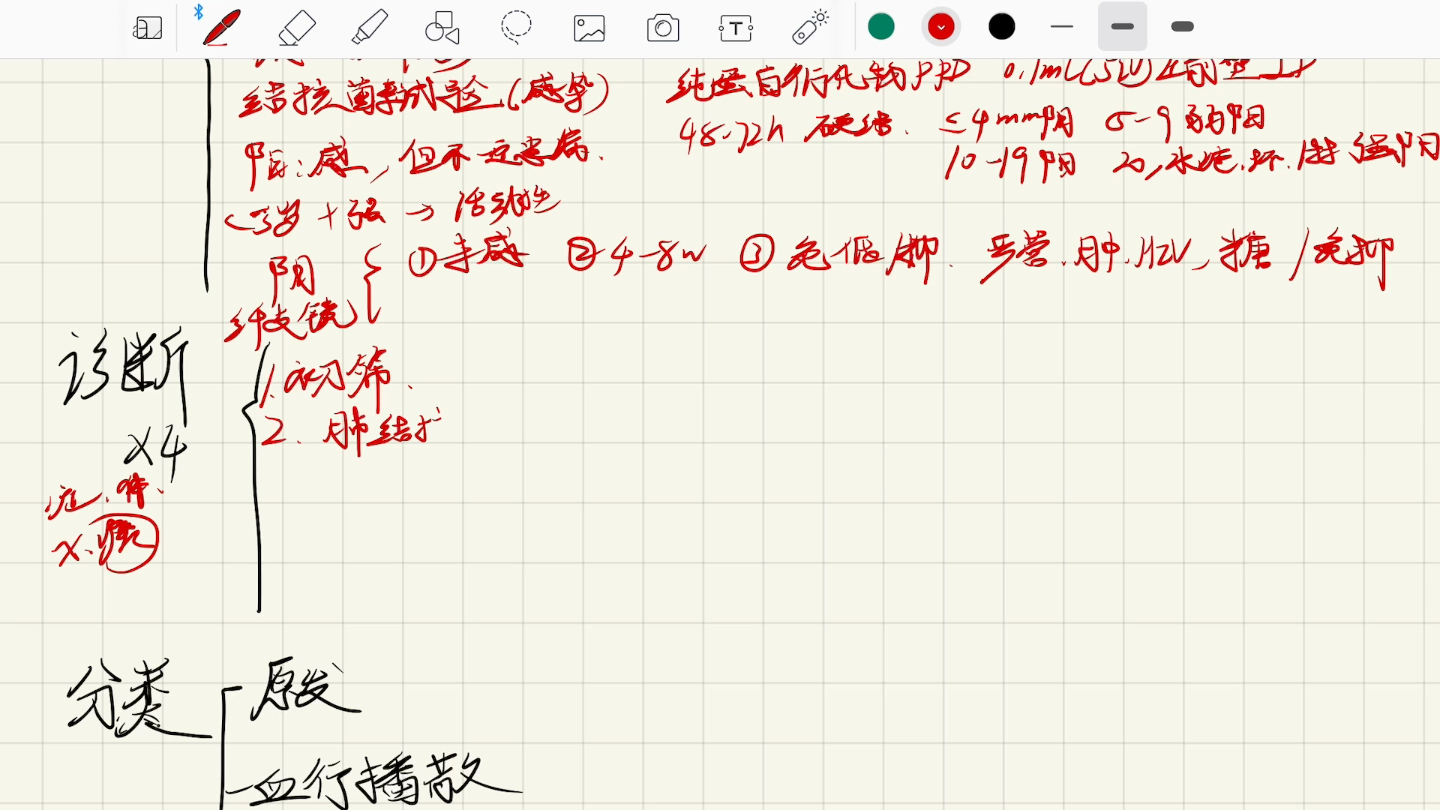 结核菌素试验(感染)
纯蛋白衍化物PPD 0.1ml(5IU)
48-72h 硬结. ≤4mm阴 5-9弱阳
10-19阳 20,水疱.坏. 强阳
阳:感,但不一定患病.
<3岁+强→活动性
阴 ①未感 ②4-8w ③免低/抑. 营.肿.HIV、糖/免抑
纤支镜
诊断
×4
症.体.
X.
1.初筛.
2.肺结
分类
原发
血行播散
T